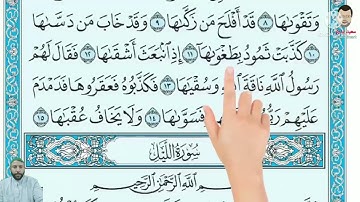 وَتَقْوَىٰهَا ٨ قَدْ أَفْلَحَ مَن زَكَّىٰهَا ٩ وَقَدْ خَابَ مَن دَسَّىٰهَا
١٠ كَذَّبَتْ ثَمُودُ بِطَغْوَىٰهَا ١١ إِذِ ٱنۢبَعَثَ أَشْقَىٰهَا ١٢ فَقَالَ لَهُمْ
رَسُولُ ٱللَّهِ نَاقَةَ ٱللَّهِ وَسُقْيَٰهَا ١٣ فَكَذَّبُوهُ فَعَقَرُوهَا فَدَمْدَمَ
عَلَيْهِمْ فَسَوَّىٰهَا ١٤ وَلَا يَخَافُ عُقْبَٰهَا ١٥
سُورَةُ ٱللَّيْلِ
ٱللَّهِ ٱلرَّحْمَٰنِ ٱلرَّحِيمِ